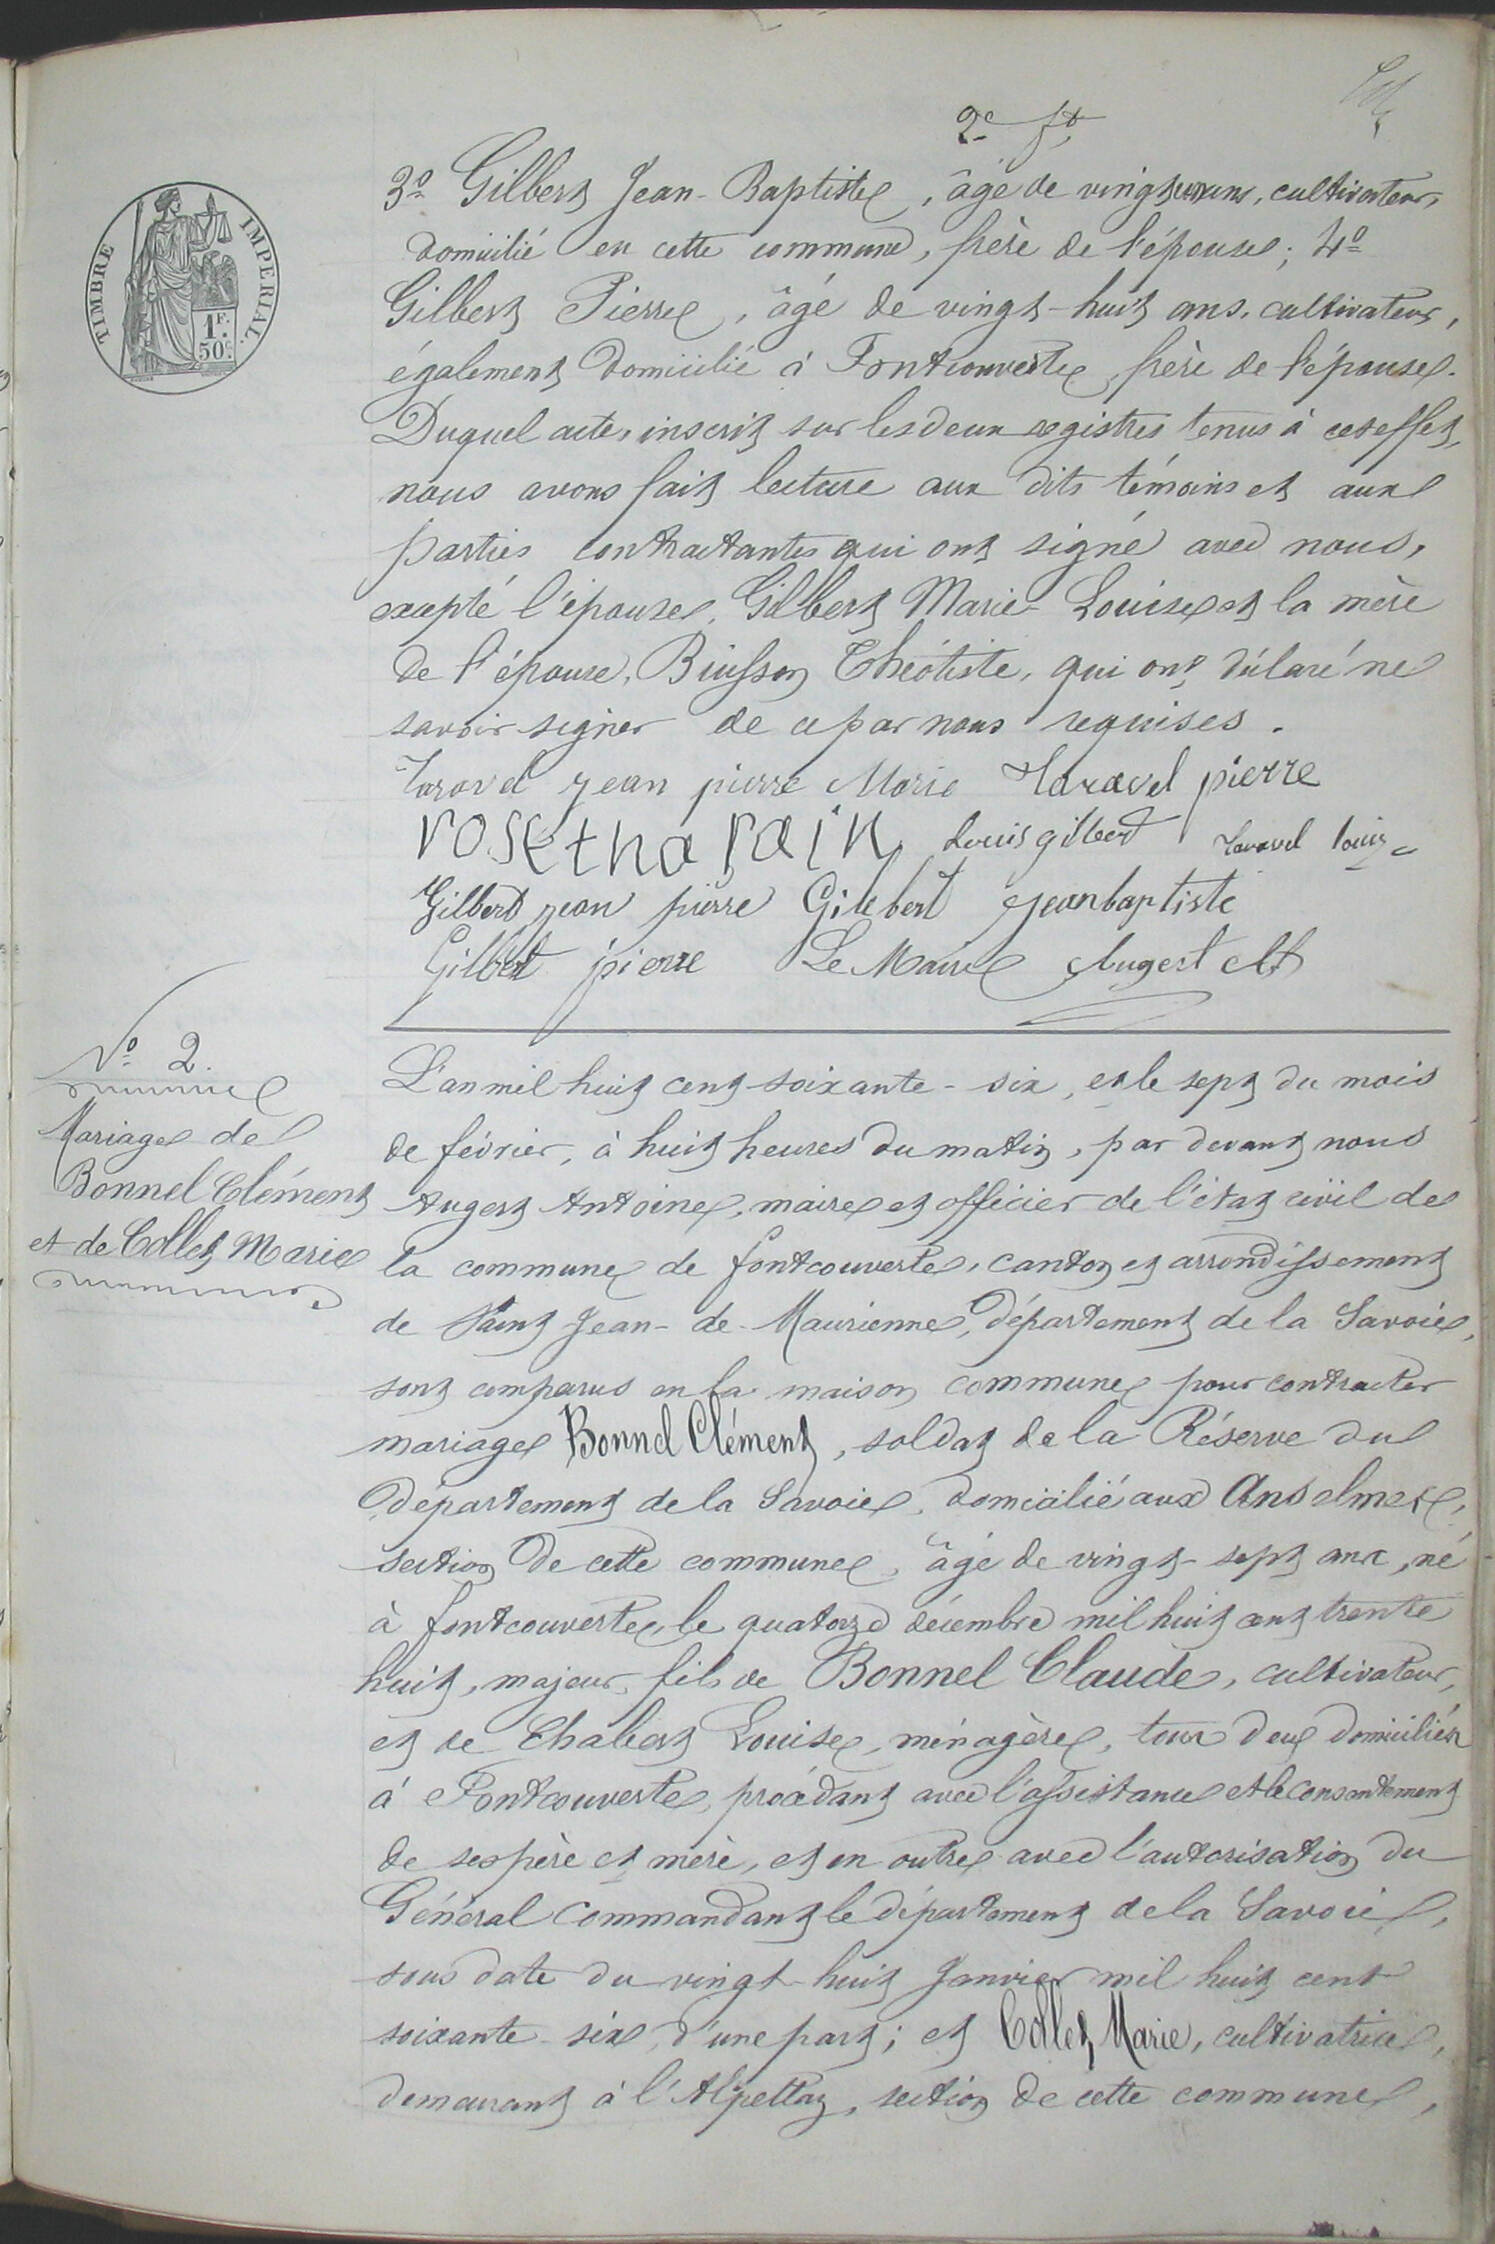 2e ft
TIMBRE IMPERIAL.
1F. 50c.
3o Gilbert Jean-Baptiste, âgé de vingt un ans, cultivateur,
domicilié en cette commune, frère de l'épouse; 4o
Gilbert Pierre, âgé de vingt-huit ans, cultivateur,
également domicilié à Fontcouverte, frère de l'épouse.
Duquel acte, inscrit sur les deux registres tenus à cet effet,
nous avons fait lecture aux dits témoins et aux
parties contractantes qui ont signé avec nous,
excepté l'épouse, Gilbert Marie-Louise et la mère
de l'épouse, Buisson Théotiste, qui ont déclaré ne
savoir signer de ce par nous requises.
Taravel jean pierre Marie Taravel pierre
rosethalain Louis gilbert Taravel louis
Gilbert jean pierre Gilebert jeanbaptiste
Gilbert pierre Le Maire Augert At
No 2.
Mariage de
Bonnel Clément
et de Collet Marie
L'an mil huit cent soixante-six, et le sept du mois
de février, à huit heures du matin, par devant nous
Augert Antoine, maire et officier de l'état civil de
la commune de fontcouverte, canton et arrondissement
de Saint Jean-de-Maurienne, département de la Savoie,
sont comparus en la maison commune pour contracter
mariage Bonnel Clément, soldat de la Réserve du
département de la Savoie, domicilié aux Anselmes,
section de cette commune, âgé de vingt-sept ans, né
à fontcouverte, le quatorze décembre mil huit cent trente
huit, majeur, fils de Bonnel Claude, cultivateur,
et de Chabert Louise, ménagère, tous deux domiciliés
à Fontcouverte, procédant avec l'assistance et le consentement
de ses père et mère, et en outre avec l'autorisation du
Général commandant le département de la Savoie,
sous date du vingt-huit Janvier mil huit cent
soixante-six, d'une part; et Collet Marie, cultivatrice,
demeurant à l'Alpettaz, section de cette commune,